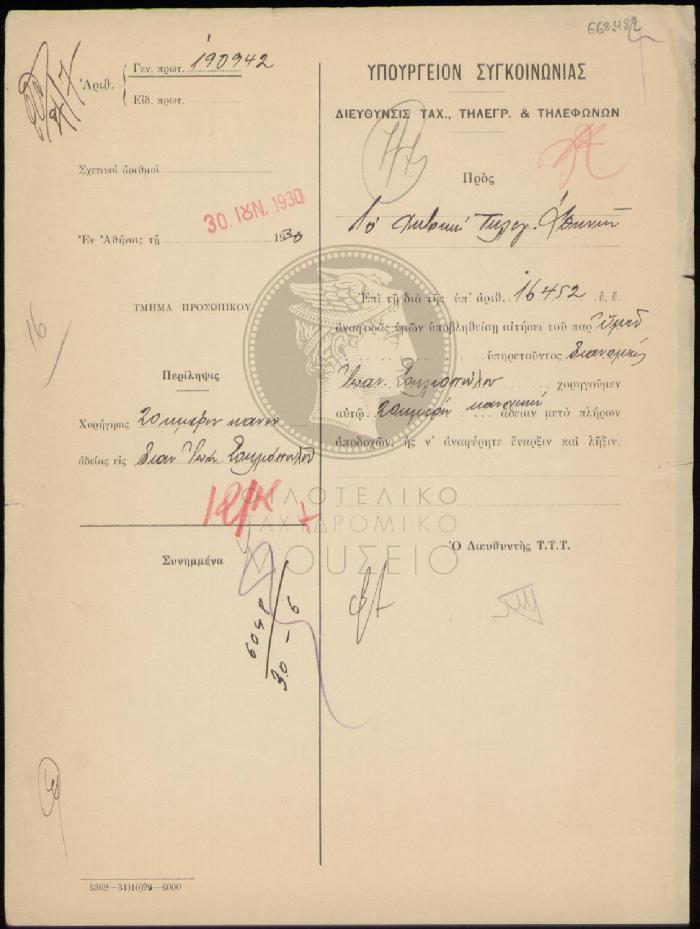 668.482
Γεν. πρωτ. 190942
Ἀριθ.
Εἰδ. πρωτ.
Σχετικοὶ ἀριθμοὶ
30. ΙΟΥΝ. 1930
Ἐν Ἀθήναις τῇ 1930
ΤΜΗΜΑ ΠΡΟΣΩΠΙΚΟΥ
16
Περίληψις
Χορήγησις 20ημέρου κανον
ἀδείας εἰς διαν Ἰωάν.
Συνημμένα
6048
30-6
5362—31)10)29—6000
ΥΠΟΥΡΓΕΙΟΝ ΣΥΓΚΟΙΝΩΝΙΑΣ
ΔΙΕΥΘΥΝΣΙΣ ΤΑΧ., ΤΗΛΕΓΡ. & ΤΗΛΕΦΩΝΩΝ
Πρὸς
Τὸ Κεντρικὸ Τηλεγ. Ἀθηνῶν
Ἐπὶ τῇ διὰ τῆς ὑπ' ἀριθ. 16452 ἐ. ἔ.
ἀναφορᾶς ὑμῶν ὑποβληθείσῃ αἰτήσει τοῦ παρ' ὑμῖν
ὑπηρετοῦντος διανομέως
Ἰωάν. χορηγοῦμεν
αὐτῷ 20ήμερον κανονικὴν ἄδειαν μετὰ πλήρων
ἀποδοχῶν, ἧς ν' ἀναφέρητε ἔναρξιν καὶ λῆξιν.
Ὁ Διευθυντὴς Τ.Τ.Τ.
ΦΙΛΟΤΕΛΙΚΟ
ΤΑΧΥΔΡΟΜΙΚΟ
ΜΟΥΣΕΙΟ